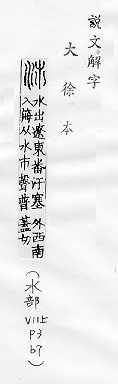 說文解字
大徐本
沛 水出遼東番汗塞外西南
入海从水巿聲普蓋切
(水部 VIII上 P3 b7)